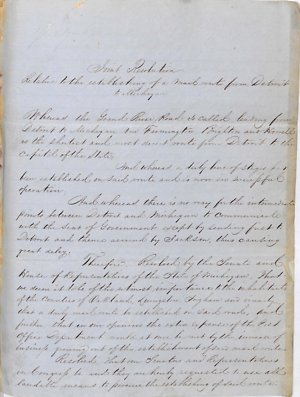 Joint Resolution
Relative to the establishing of a mail route from Detroit
to Michigan
Whereas the Grand River Road so called leading from
Detroit to Michigan via Farmington Brighton and Howell
is the shortest and most direct route from Detroit to the
Capitol of the State
And whereas a daily line of stages has
been established on said route and is now in successful
operation
And whereas there is no way for the intermediate
points between Detroit and Michigan to communicate
with the Seat of Government except by sending first to
Detroit and thence around by Jackson, thus causing
great delay;
Therefore, Resolved by the Senate and
House of Representatives of the State of Michigan, That
we deem it to be of the utmost importance to the inhabitants
of the Counties of Oakland, Livingston Ingham
that a daily mail route be established on said route, and
further that in our opinion the extra expenses of the Post
Office Department would at once be met by the increase of
business growing out of the establishment of said mail route
Resolved That our Senators and Representatives
in Congress be and they are hereby requested to use all
laudable means to procure the establishing of said route